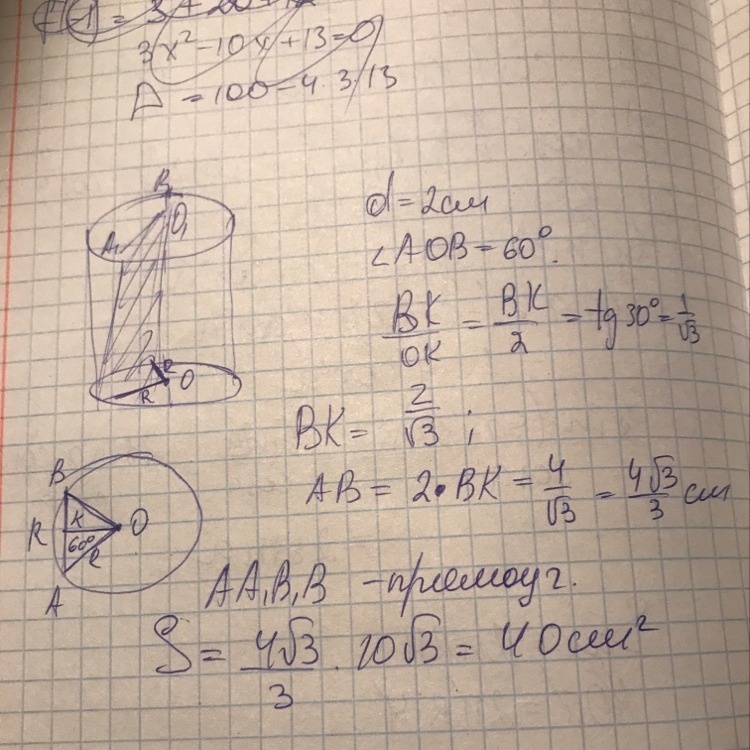 3x² - 10x + 13 = 0
D = 100 - 4 · 3 · 13
B₁
O₁
A₁
R
R
O
d = 2см
∠AOB = 60°.
BK/OK = BK/2 = tg 30° = 1/√3
BK = 2/√3 ;
AB = 2 · BK = 4/√3 = 4√3/3 см
B
K
K
60°
R
O
A
AA₁B₁B - прямоуг.
S = 4√3/3 · 10√3 = 40см²